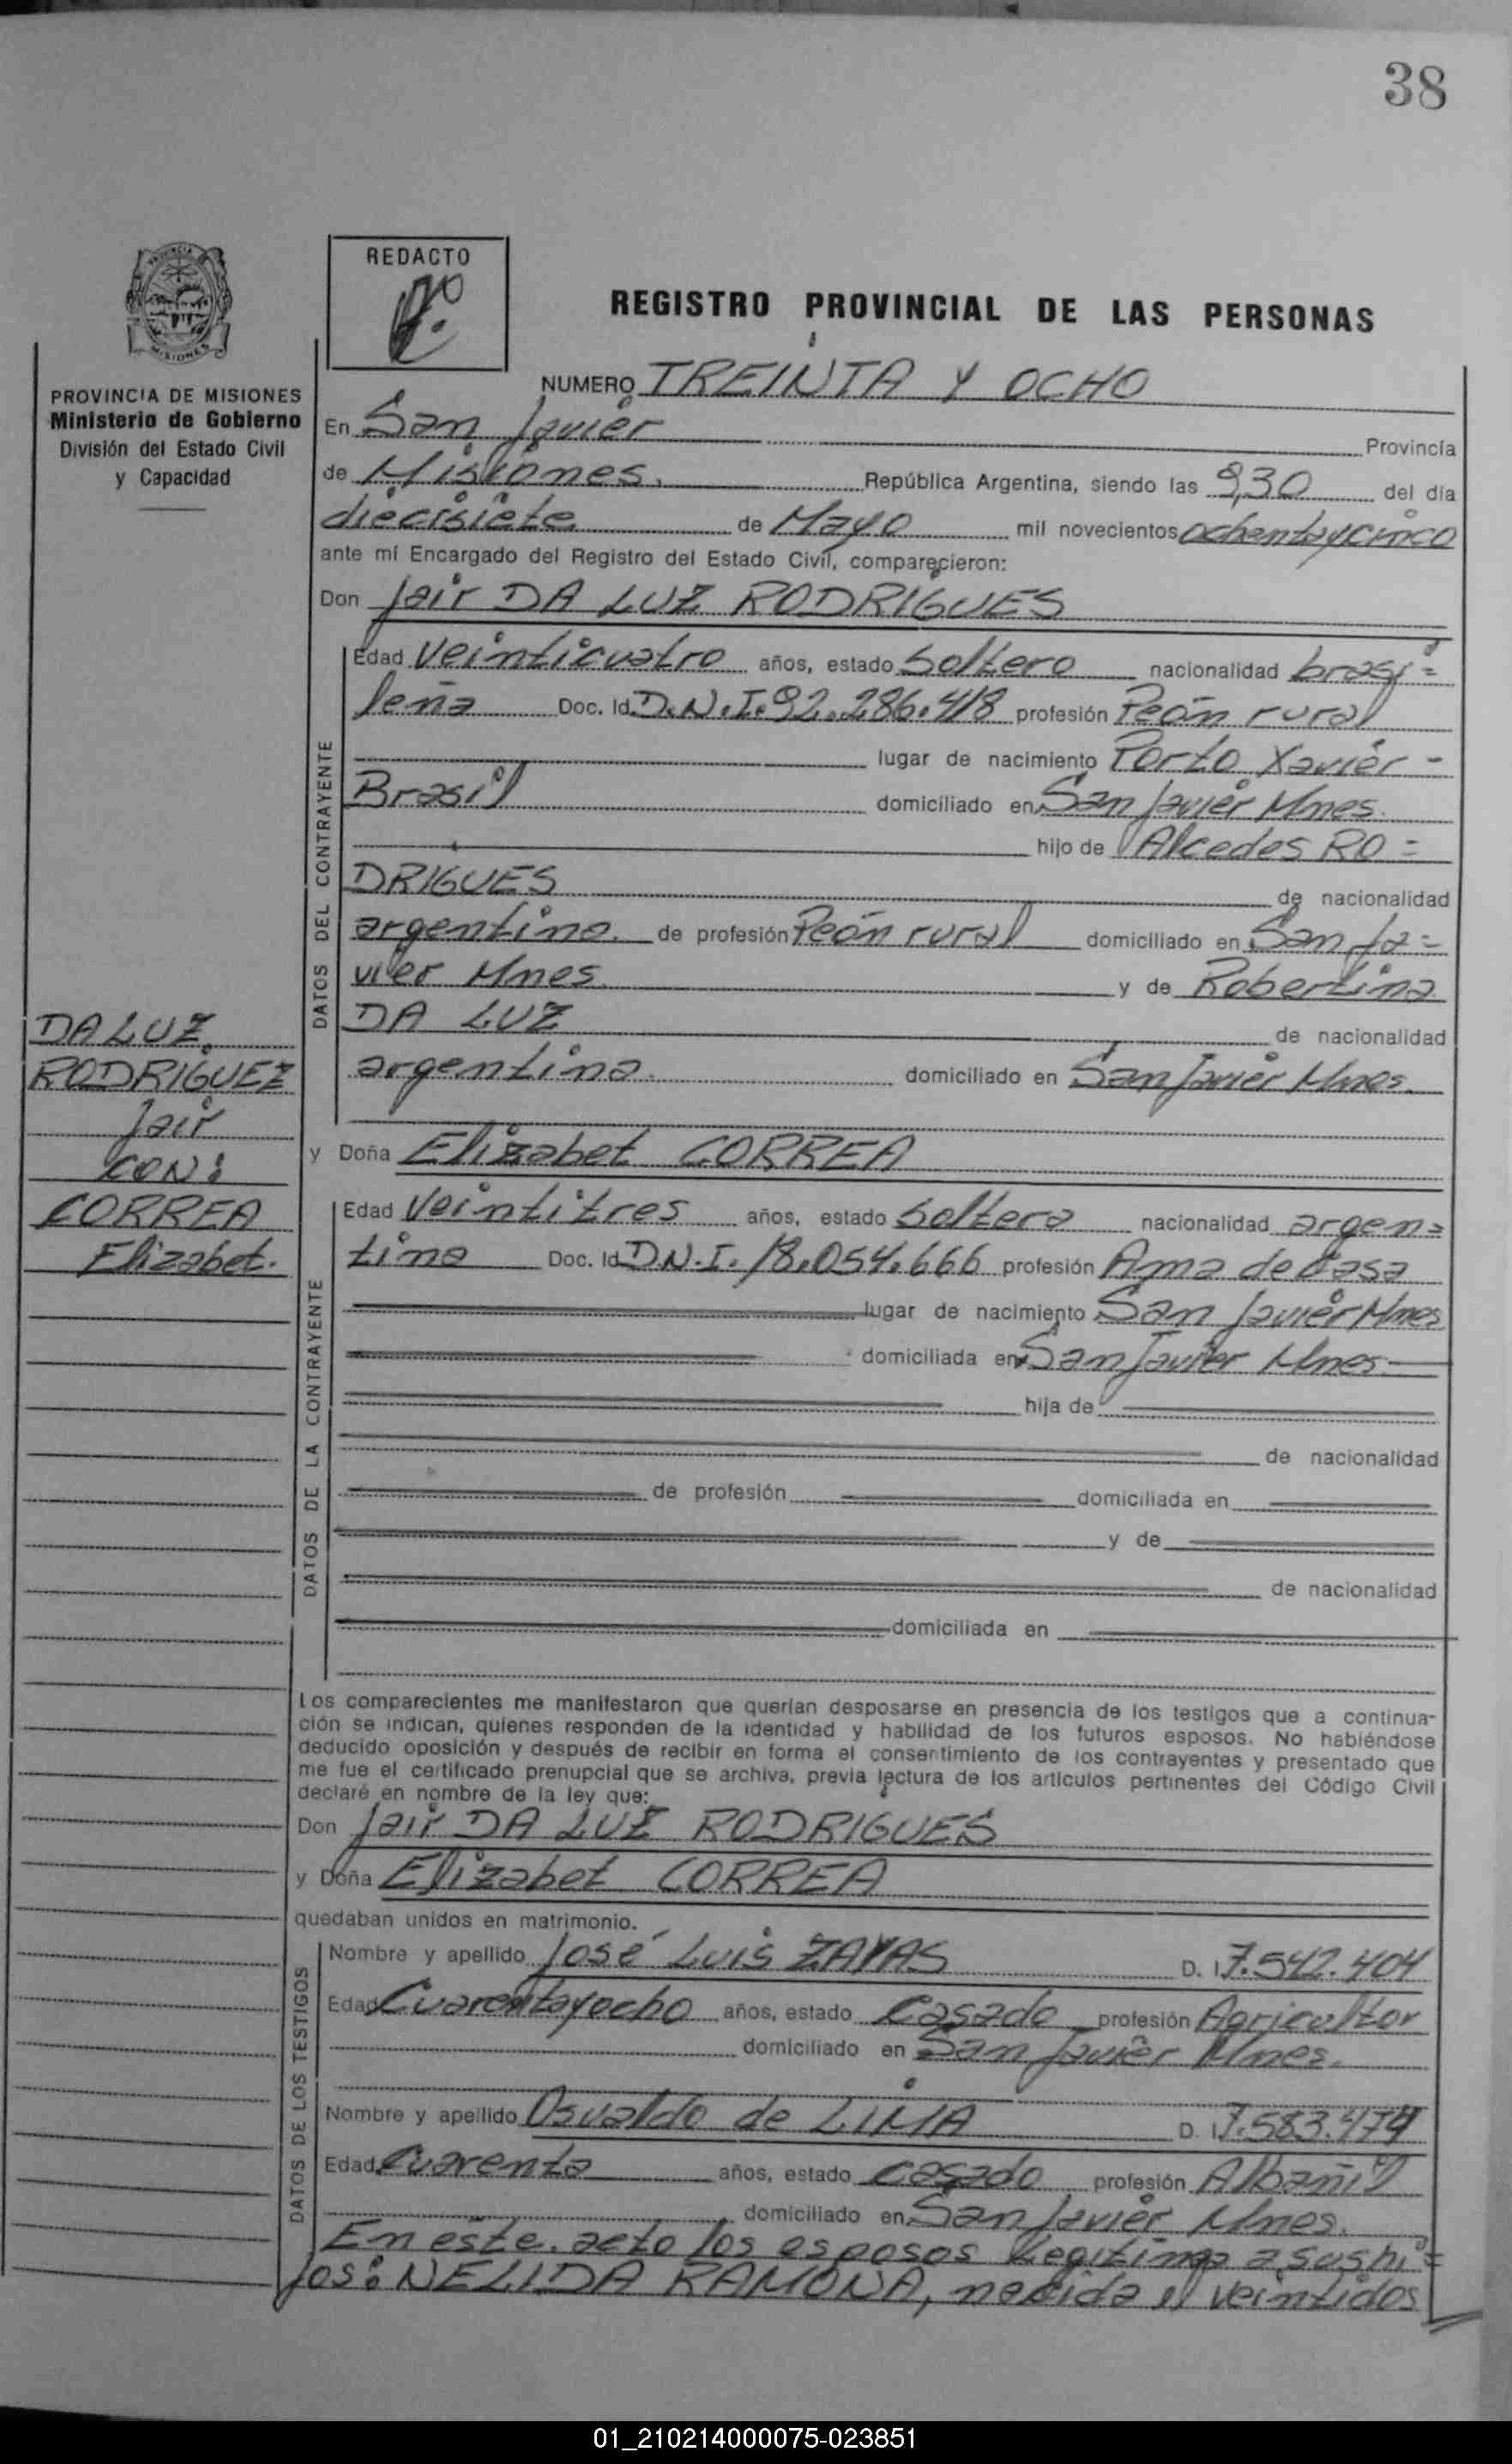 38
REDACTO
REGISTRO PROVINCIAL DE LAS PERSONAS
MISIONES
PROVINCIA DE MISIONES
Ministerio de Gobierno
División del Estado Civil
y Capacidad
NUMERO TREINTA Y OCHO
En San Javier Provincia
de Misiones. República Argentina, siendo las 9,30 del día
diecisiete de Mayo mil novecientos ochentaycinco
ante mí Encargado del Registro del Estado Civil, comparecieron:
Don Jair DA LUZ RODRIGUES
DATOS DEL CONTRAYENTE
Edad Veinticuatro años, estado Soltero nacionalidad brasi=
leña Doc. Id. D.N.I. 92.286.418 profesión Peón rural
lugar de nacimiento Porto Xavier -
Brasil domiciliado en San Javier Mnes.
hijo de Alcedes RO=
DRIGUES de nacionalidad
argentino. de profesión Peón rural domiciliado en San Ja=
vier Mnes. y de Robertina
DA LUZ de nacionalidad
argentina. domiciliado en San Javier Mnes.
DA LUZ
RODRIGUEZ
Jair
CON:
CORREA
Elizabet.
y Doña Elizabet CORREA
DATOS DE LA CONTRAYENTE
Edad Veintitres años, estado Soltera nacionalidad argen=
tina Doc. Id. D.N.I. 18.054.666 profesión Ama de Casa
lugar de nacimiento San Javier Mnes
domiciliada en San Javier Mnes.
hija de
de nacionalidad
de profesión domiciliada en
y de
de nacionalidad
domiciliada en
Los comparecientes me manifestaron que querían desposarse en presencia de los testigos que a continua-
ción se indican, quienes responden de la identidad y habilidad de los futuros esposos. No habiéndose
deducido oposición y después de recibir en forma el consentimiento de los contrayentes y presentado que
me fue el certificado prenupcial que se archiva, previa lectura de los artículos pertinentes del Código Civil
declaré en nombre de la ley que:
Don Jair DA LUZ RODRIGUES
y Doña Elizabet CORREA
quedaban unidos en matrimonio.
DATOS DE LOS TESTIGOS
Nombre y apellido José Luis ZAYAS D. I. 7.542.404
Edad Cuarentayocho años, estado Casado profesión Agricultor
domiciliado en San Javier Mnes.
Nombre y apellido Osvaldo de LIMA D. I. 7.583.474
Edad Cuarenta años, estado Casado profesión Albañil
domiciliado en San Javier Mnes.
En este acto los esposos legitima a sus hi=
jos: NELIDA RAMONA, nacida el veintidos
01_210214000075-023851